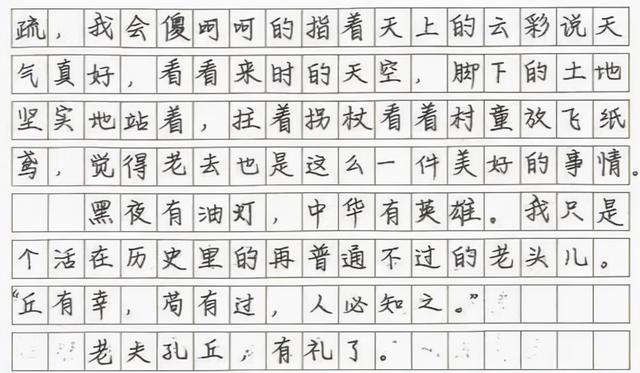 疏，我会傻呵呵的指着天上的云彩说天
气真好，看看来时的天空，脚下的土地
坚实地站着，拄着拐杖看着村童放飞纸
鸢，觉得老去也是这么一件美好的事情。
黑夜有油灯，中华有英雄。我只是
个活在历史里的再普通不过的老头儿。
“丘有幸，苟有过，人必知之。”
老夫孔丘，有礼了。